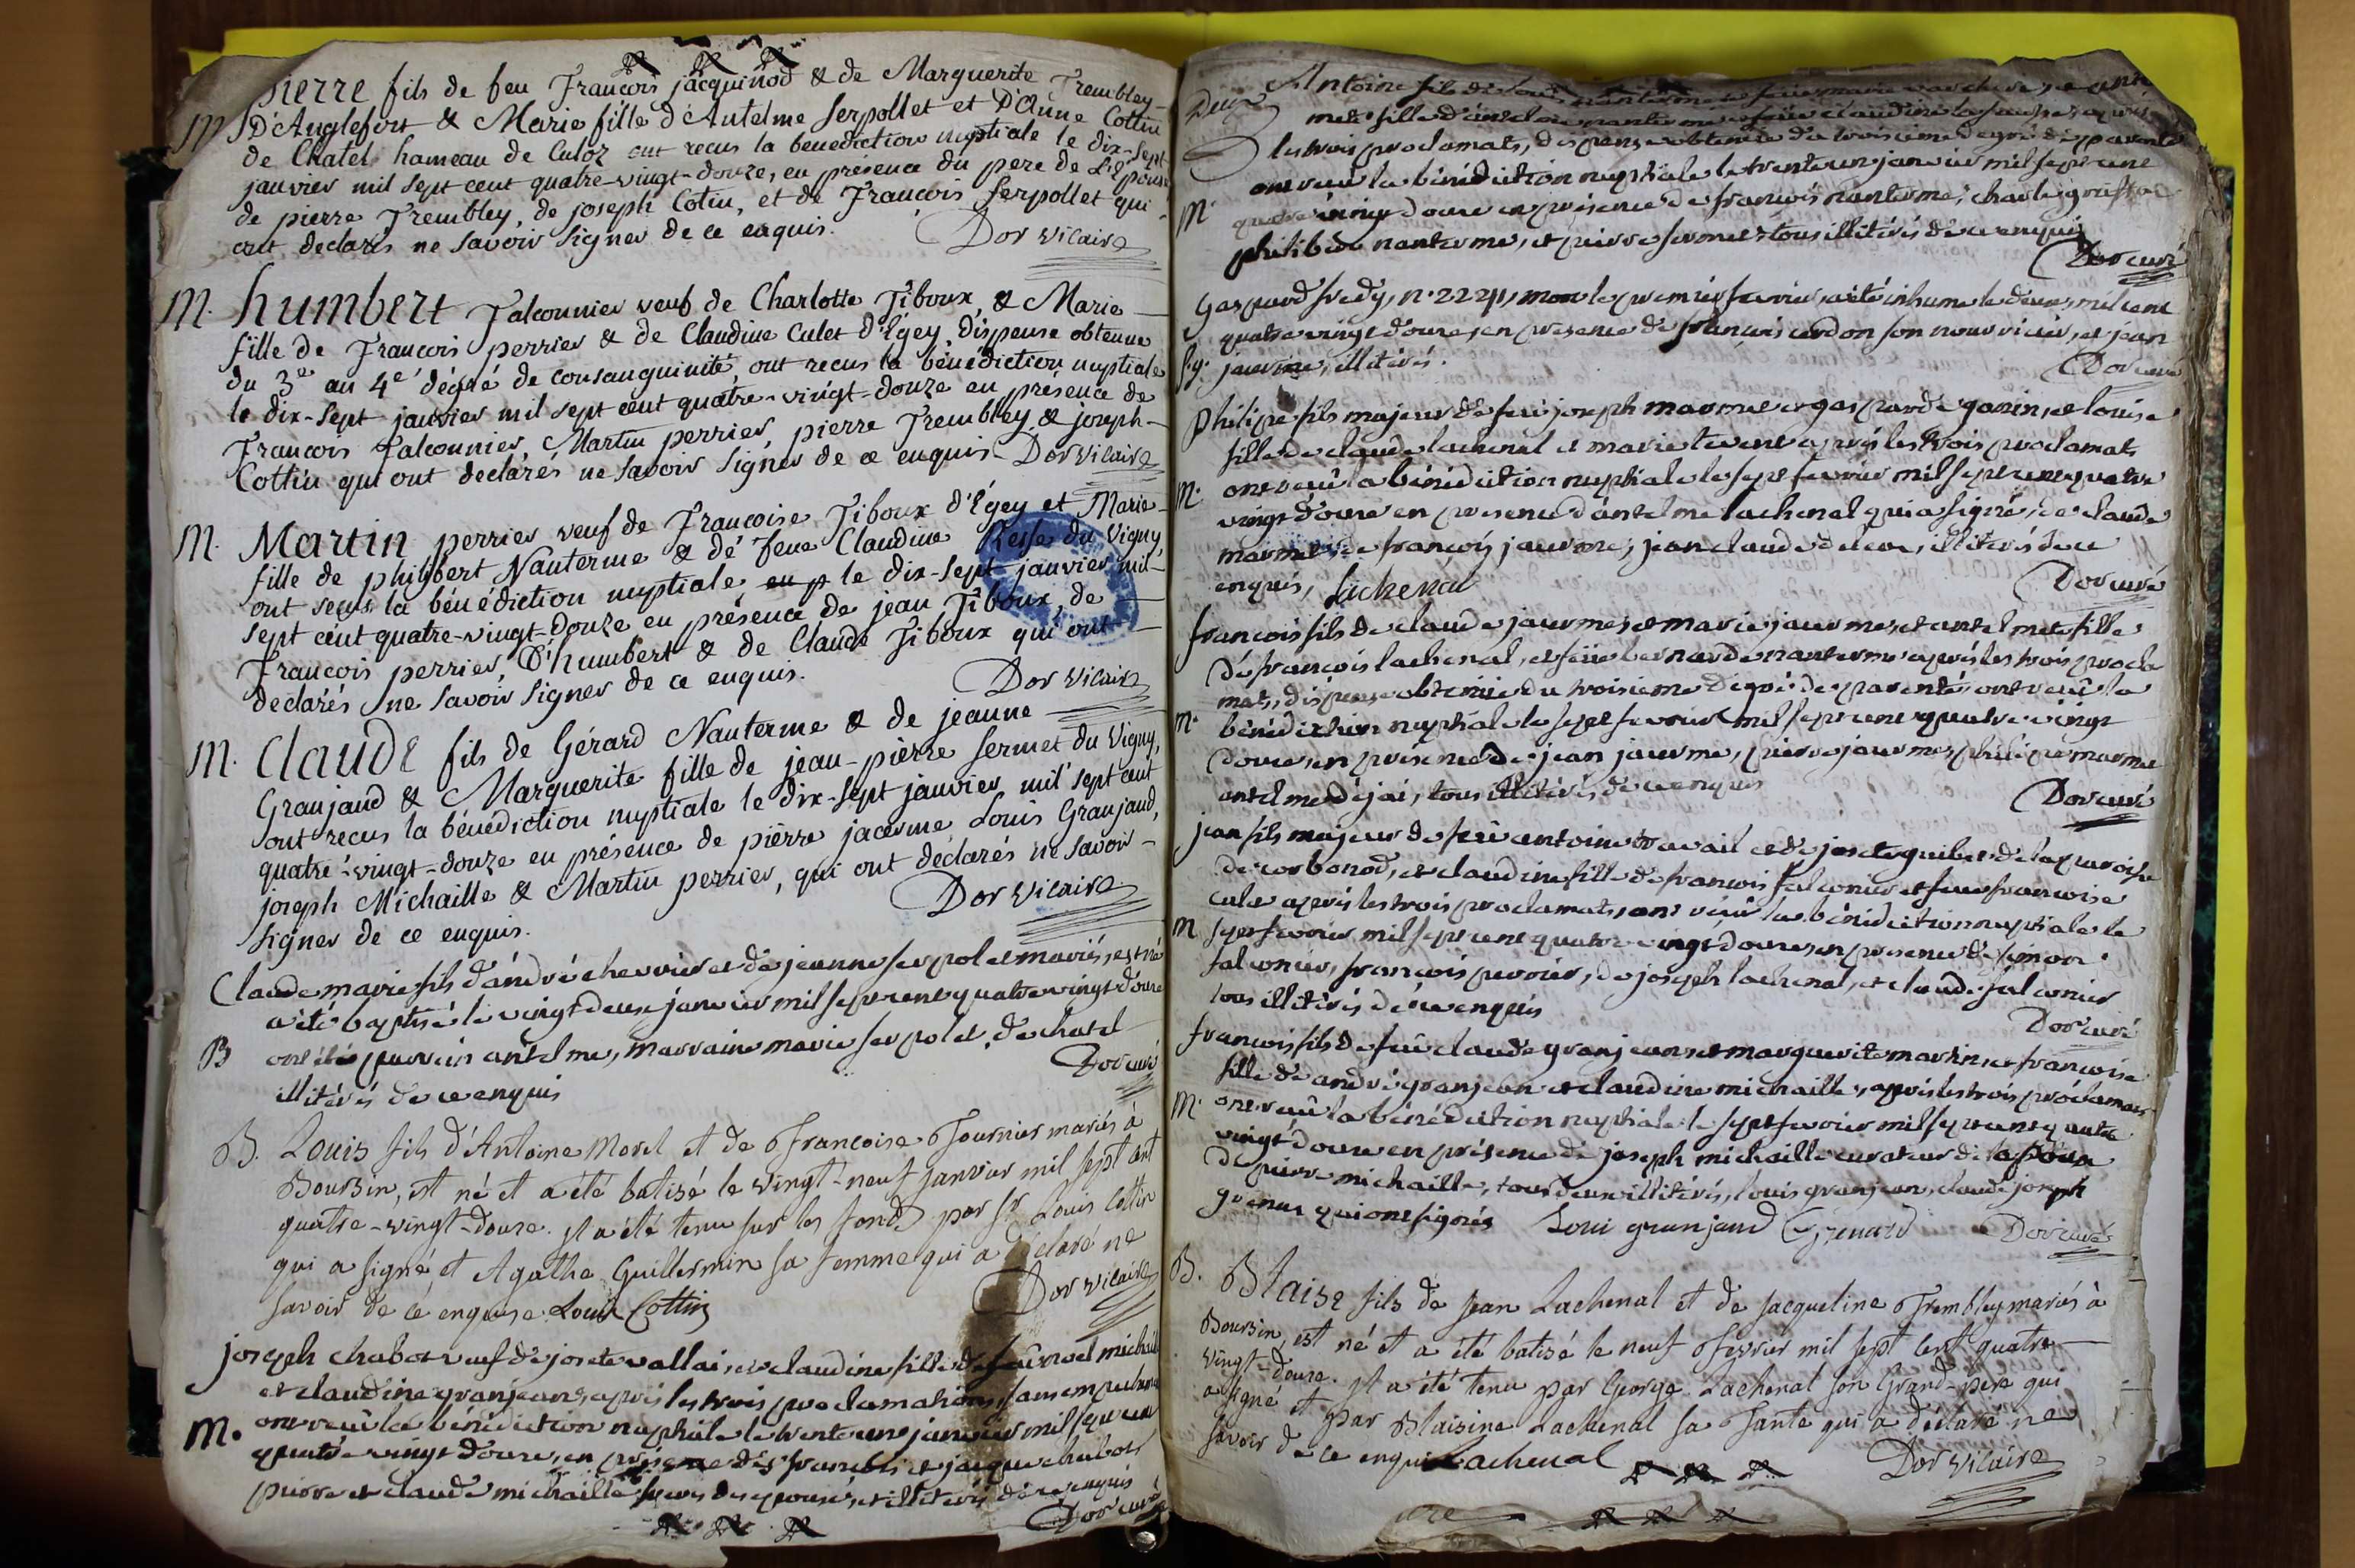 Pierre fils de feu François jacquinod & de Marguerite Trembley-
M D'Anglefort & Marie fille d'Antelme Serpollet et D'Anne Cottin
de Chatel hameau de Culoz ont recus la benediction nuptiale le dix-sept
janvier mil sept cent quatre-vingt-douze, en présence du pere de L'Epouse
de pierre Trembley, de joseph Cotin, et de François Serpollet qui
ont declarés ne Savoir Signer de ce enquis. Dor Vicaire
M. humbert Falconnier veuf de Charlotte Tiboux, & Marie
fille de François perrier & de Claudine Culet d'Egey, dispense obtenue
du 3e au 4e dégré de consanguinité, ont recus la bénédiction nuptiale
le dix-sept janvier mil sept cent quatre-vingt-douze en présence de
François Falconnier, Martin perrier, pierre Trembley & joseph-
Cottin qui ont declarés ne savoir Signer de ce enquis Dor Vicaire
M. Martin perrier veuf de Françoise Tiboux d'Egey et Marie
fille de philibert Nanterme & de feue Claudine Resse du Vigny,
ont reçus la bénédiction nuptiale, en p le dix-sept janvier mil-
sept cent quatre-vingt-douze en présence de jean Tiboux, de
François perrier, D'humbert & de Claude Tiboux qui ont
declarés ne savoir signer de ce enquis. Dor Vicaire
M. Claude fils de Gérard Nanterme & de jeanne
Granjand & Marguerite fille de jean-pierre Sermet du Vigny,
ont recus la bénédiction nuptiale le dix-sept janvier mil sept cent
quatre-vingt-douze en présence de pierre jacerme Louis Granjand,
joseph Michaille & Martin perrier, qui ont déclarés ne savoir-
signer de ce enquis. Dor Vicaire
Claude marie fils d'andré chevrier et de jeanne serpolet mariés, est né
a été baptisé le vingt deux janvier mil sept cent quatre vingt douze
B ont été parrain antelme, marraine marie serpolet, de chatel
illitérés de ce enquis Dor curé
B. Louis fils d'Antoine Morel et de Françoise Fournier mariés à
Boursin, est né et a été batisé le vingt-neuf janvier mil sept cent
quatre-vingt-douze. il a été tenu sur les fonds par sr Louis Cottin
qui a signé et Agathe Guillermin sa femme qui a déclaré ne
savoir de ce enquise. Louis Cottin Dor Vicaire
joseph chabot veuf de josete vallai, et claudine fille de feû noel michaille
et claudine granjean, après les trois proclamations sans
M. ont reçû la bénédiction nuptiale le trente un janvier mil sept cent
quatre vingt douze, en présence des françois et jacque chabot
pierre et claude michaille de ce enquis
Dor curé
Antoine fils de
Deux fille d'antelme nanterme et feüe claudine
les trois proclamats, dispense obtenue du troisième degré de parenté
ont reçû la bénédiction nuptiale le trente un janvier mil sept cent
M. quatre vingt douze en présence de françois nanterme, charle
philibert nanterme, et pierre sermet tous illitérés de ce enquis
Dor curé
Gaspard fredy, n° 2291, mort le premier fevrier, a été inhumé le deux, mil cent
quatre vingt douze, en presence de françois cerdon son nourricier, et jean
S.g. jacerme, illitérés. Dor curé
Philipe fils majeur de feu joseph marmet et gasparde ganin, et louise
fille de claude lachenal et marie tavent après les trois proclamats
M. ont reçû la bénédiction nuptiale le sept fevrier mil sept cent quatre
vingt douze en presence d'antelme lachenal qui a signé, de claude
marmet, de françois jacerme, jean claude illiterés de ce
enquis, Lachenal Dor curé
françois fils de claude jacerme, et marie jacerme, et antelmete fille
de françois lachenal, et feüe bernarde nanterme après les trois procla
mats, dispense obtenüe du troisieme dégré de parenté, ont reçû la
M. bénédiction nuptiale le sept fevrier mil sept cent quatre vingt
douze, en présence de jean jacerme, pierre jacerme, philipe marmet
antelme déjai, tous illitérés, de ce enquis Dor curé
jean fils majeur de feû antoine travail et de josete guibet de la paroisse
de corbonod, et claudine fille de françois falconier et feue françoise
culet après les trois proclamats, ont reçû la bénédiction nuptiale le
M sept fevrier mil sept cent quatre vingt douze, en presence de simon
falconier, françois perrier, de joseph lachenal, et claude falconier
tous illitérés de ce enquis Dor curé
françois fils de feû claude granjean, et marguerite martin, et françoise
fille de andré granjean et claudine michaille, après les trois proclamats
M. ont reçû la bénédiction nuptiale le sept fevrier mil sept cent quatre
vingt douze en présence de joseph michaille curateur de la
de pierre michaille, tous deux illitérés, louis granjean, claude joseph
grenar qui ont signés Loui granjand Grenard Dor curé
B. Blaise fils de Jean Lachenal et de Jacqueline Trembley mariés à
Boursin, est né et a été batisé le neuf Fevrier mil sept cent quatre
vingt-douze. il a été tenu par George Lachenal son Grand-pere qui
a signé et par Blaisine Lachenal sa tante qui a déclaré ne
savoir de ce enquis Lachenal Dor Vicaire